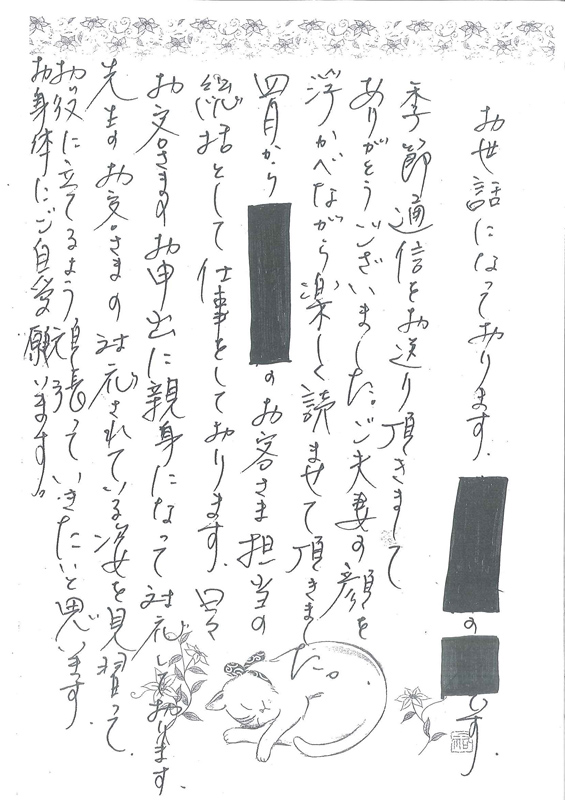 お世話になっております。
の
です。
季節通信をお送り頂きまして
ありがとうございました。ご夫妻の顔を
浮かべながら楽しく読ませて頂きました。
四月から
のお客さま担当の
総括として仕事をしております。日々
お客さまのお申出に親身になって対応しております。
先生のお客さまの対応されている姿を見習って、
お役に立てるよう頑張っていきたいと思います。
お身体にご自愛願います。